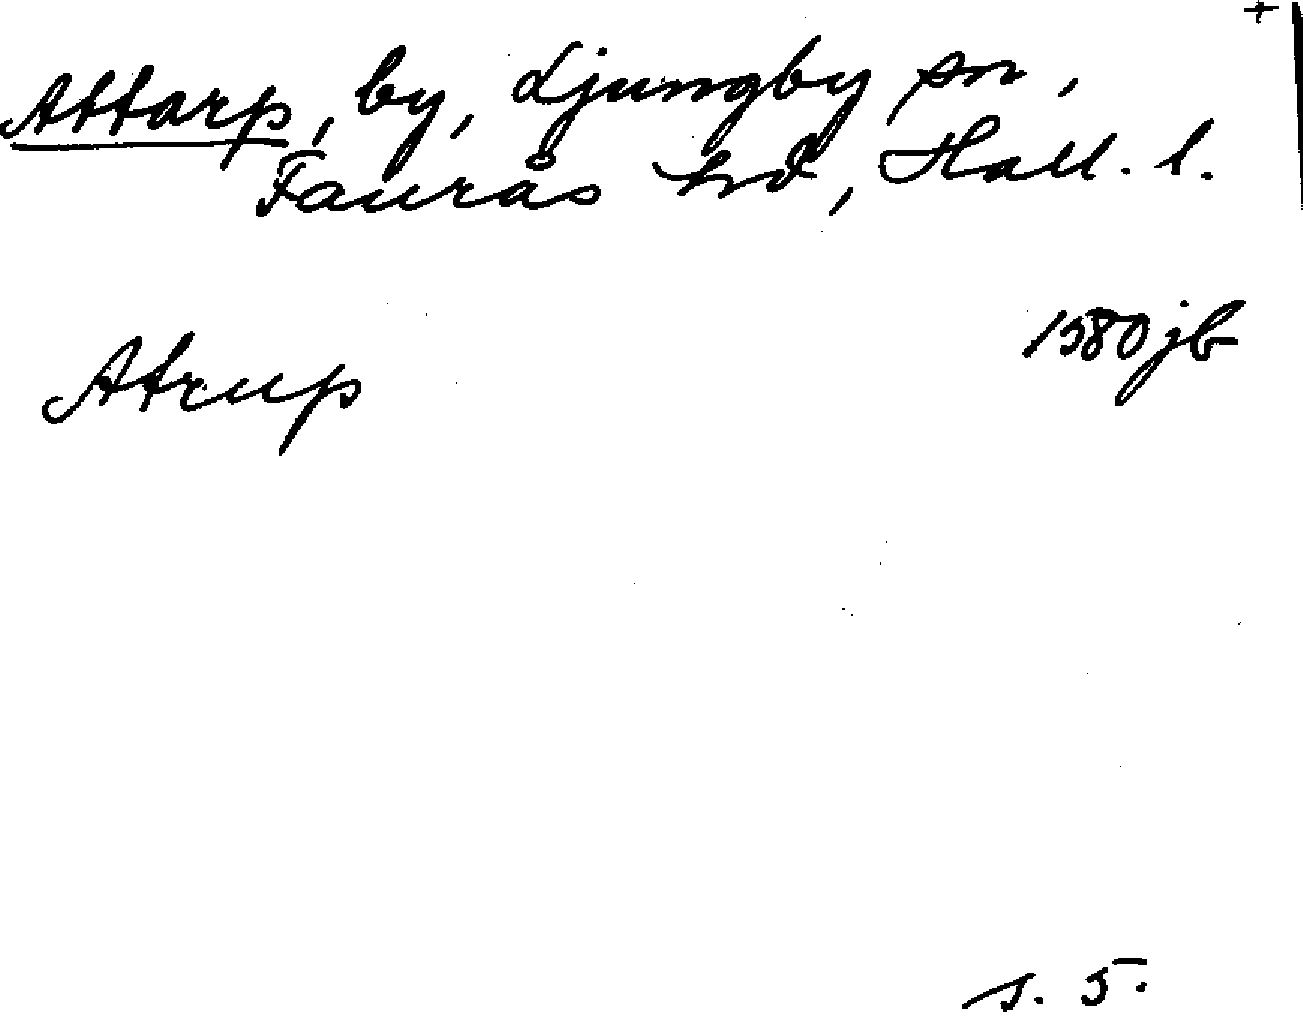 +
Attarp, by, Ljungby sn,
Faurås hd, Hall. l.
Atrup 1580 jb
s. 5.